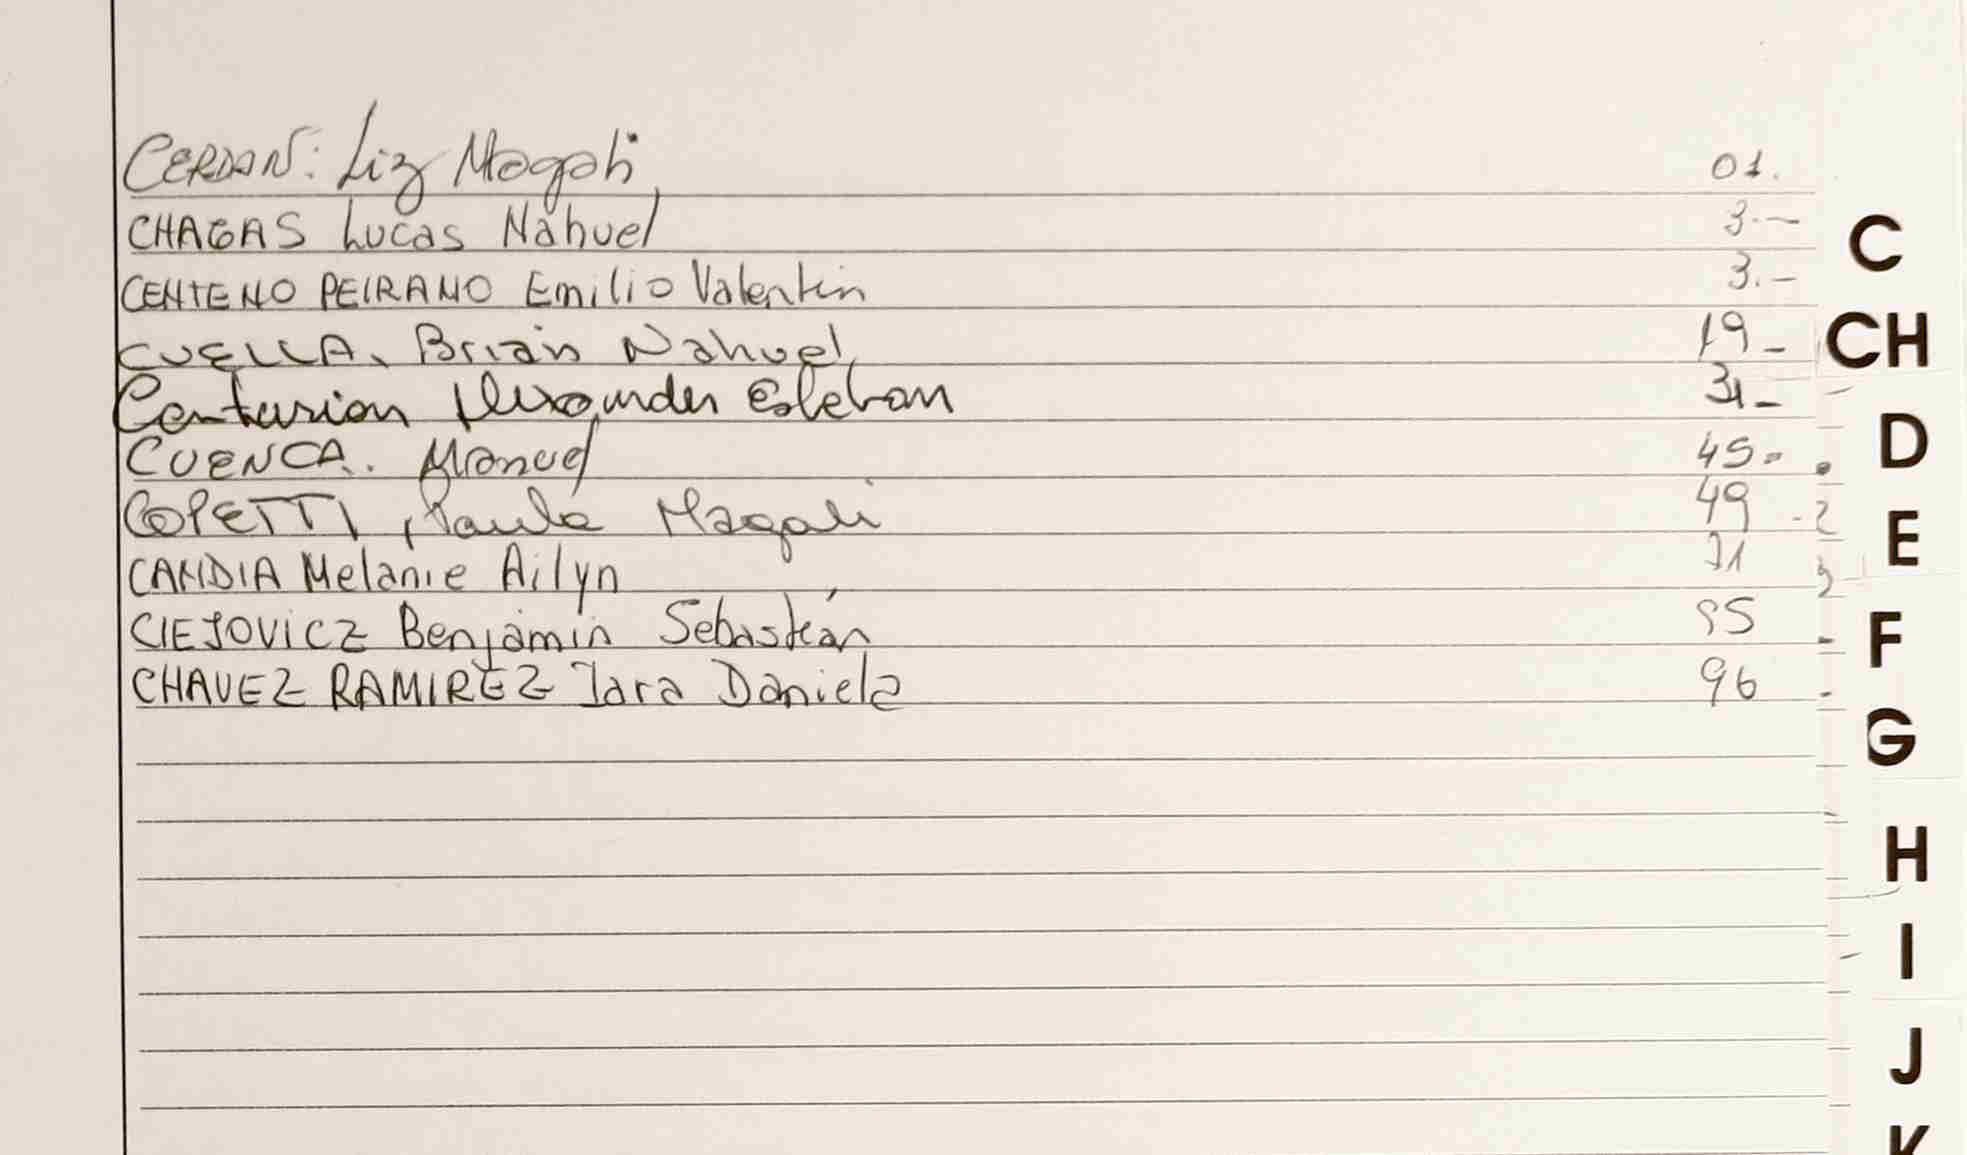 CERDAN: Liz Magali 01.
CHAGAS Lucas Nahuel 3.-
CENTENO PEIRANO Emilio Valentin 3.-
CUELLA, Brian Nahuel 19-
Centurion Alexander Esteban 31-
CUENCA. Manuel 45-
COPETTI, Paula Magali 49
CANDIA Melanie Ailyn 71
CIEJOVICZ Benjamin Sebastián 95
CHAVEZ RAMIREZ Iara Daniela 96
C
CH
D
E
F
G
H
I
J
K